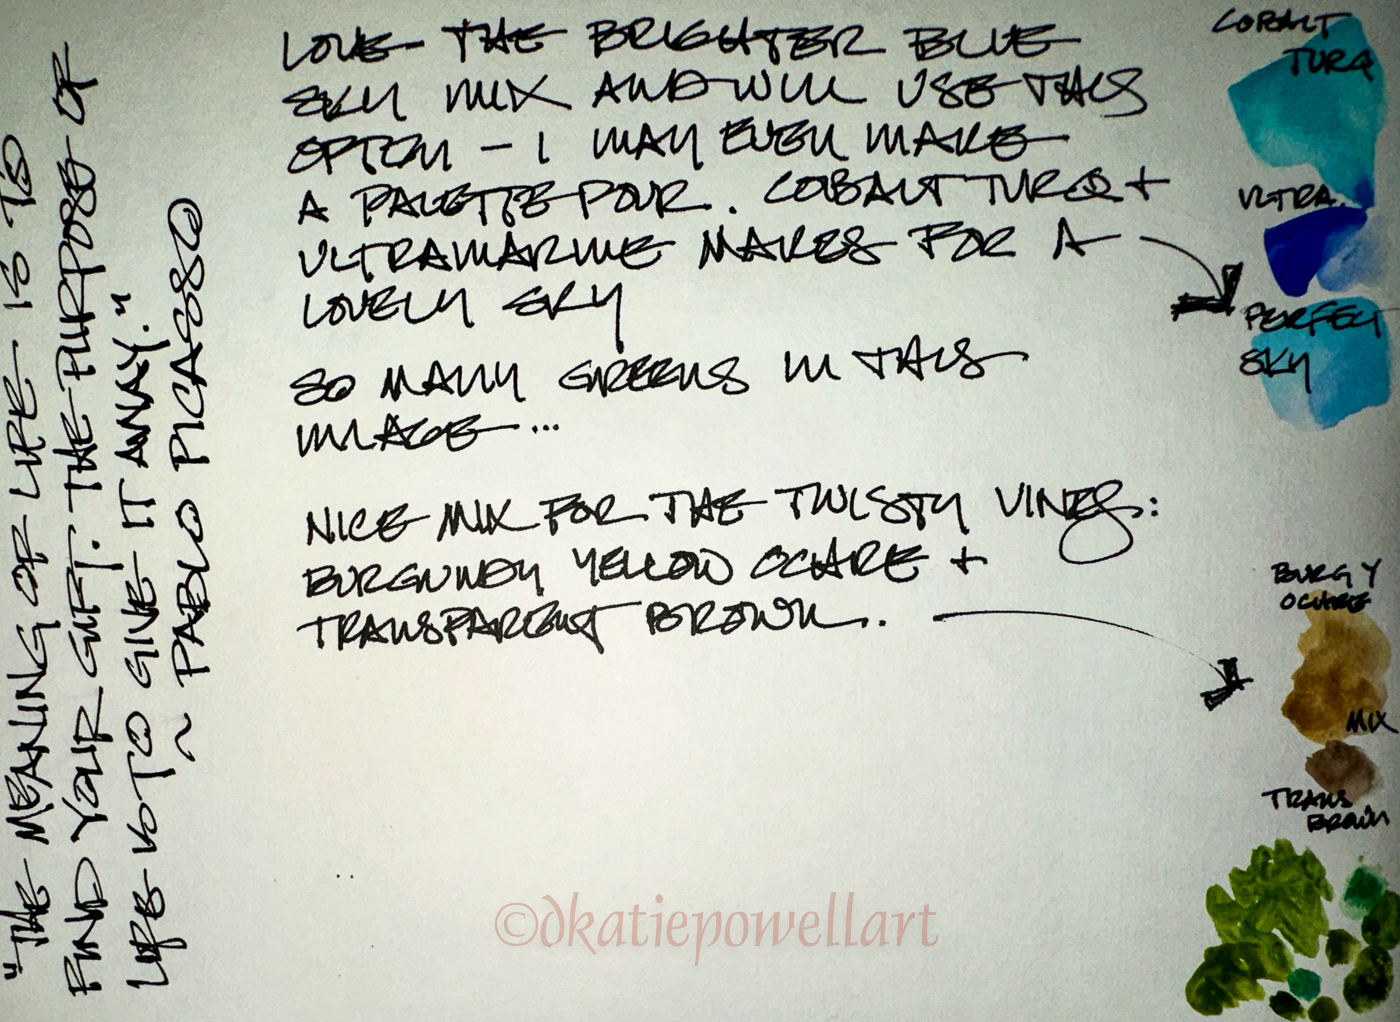 "THE MEANING OF LIFE IS TO
FIND YOUR GIFT. THE PURPOSE OF
LIFE IS TO GIVE IT AWAY."
~ PABLO PICASSO
LOVE THE BRIGHTER BLUE
SKY MIX AND WILL USE THIS
OPTION – I MAY EVEN MAKE
A PALETTE POUR. COBALT TURQ +
ULTRAMARINE MAKES FOR A
LOVELY SKY
SO MANY GREENS IN THIS
IMAGE ...
NICE MIX FOR THE TWISTY VINES:
BURGUNDY YELLOW OCHRE +
TRANSPARENT BROWN.
COBALT
TURQ
ULTRA.
PERFECT
SKY
BURG Y
OCHRE
MIX
TRANS
BROWN
©dkatiepowellart